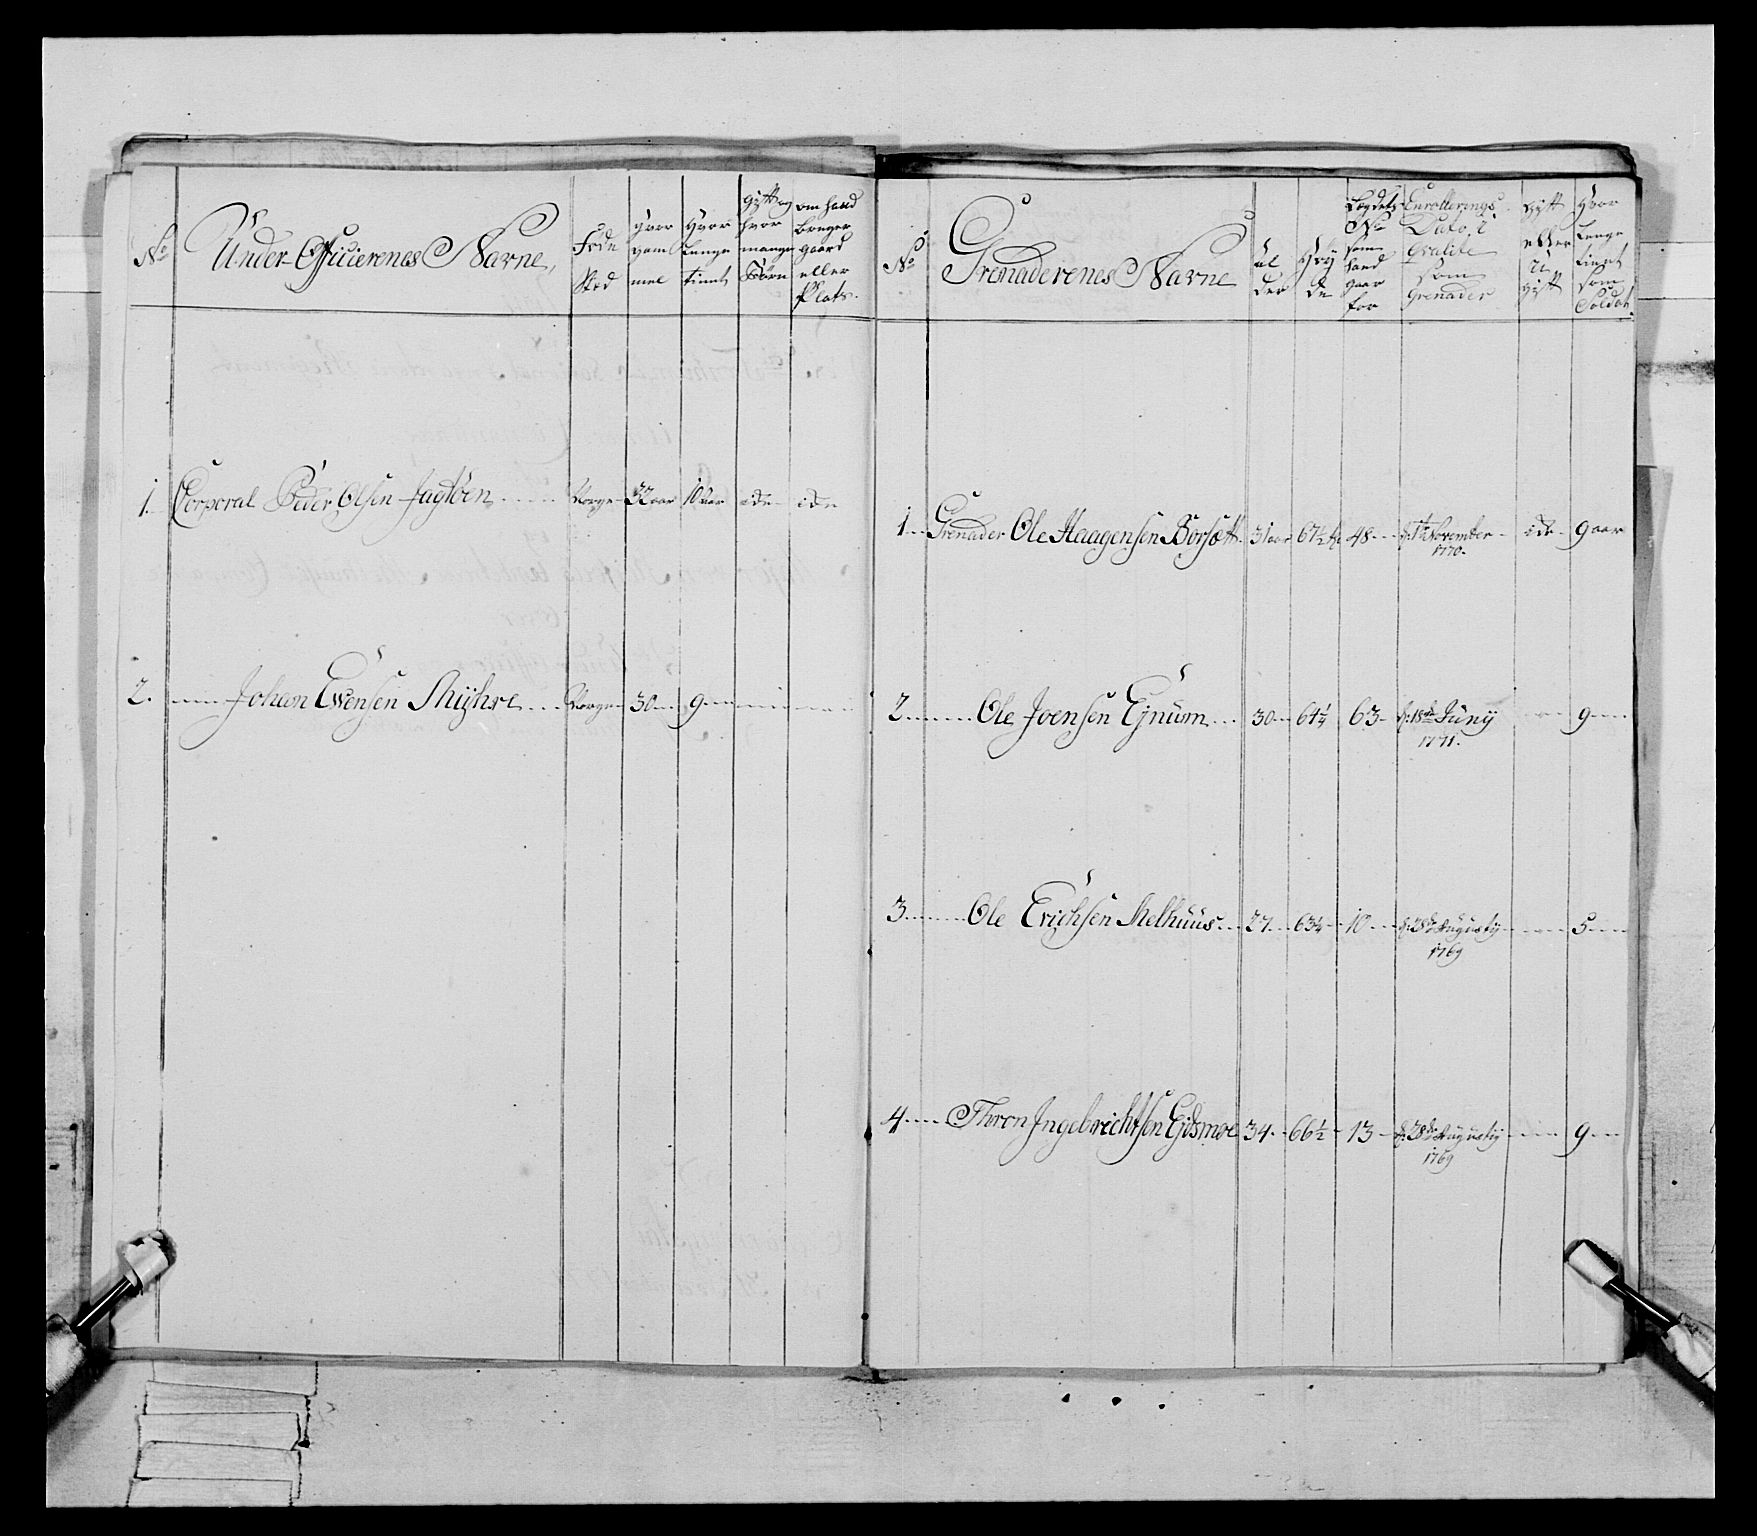 No
Under-Officierenes Navne,
Føde
Sted
hvor
gam
mel
Hvor
Lenge
tient
gift og
hvor
mange
Børn
om hand
bruger
gaard
eller
Plats.
1. Corporal Peder Olsen Jagtøen Norge 32 aar 10 aar ide ide
2. Johan Evensen Myhre Norge 30 9
No
Grenaderenes Navne
al
der
Høy
de
Legdets
No
som
hand
gaar
for
Enrollerings
Dato, i
qvalite
som
Grenader
gift
eller
u
gift
Hvor
Lenge
tient
som
Soldat.
1 Grenader Ole Haagensen Borsett 31 aar 67½ 48 d: 1te November ide 9 aar
1770.
2 Ole Joensen Ejnum 30 64¼ 63 d: 18de Juny 9
1771.
3 Ole Erichsen Melhuus 27 63¼ 10 d: 28de Augusty 5
1769
4 Thron Ingebrichtsen Ejdsmoe 34 66½ 13 d: 28de Augusty 9
1769